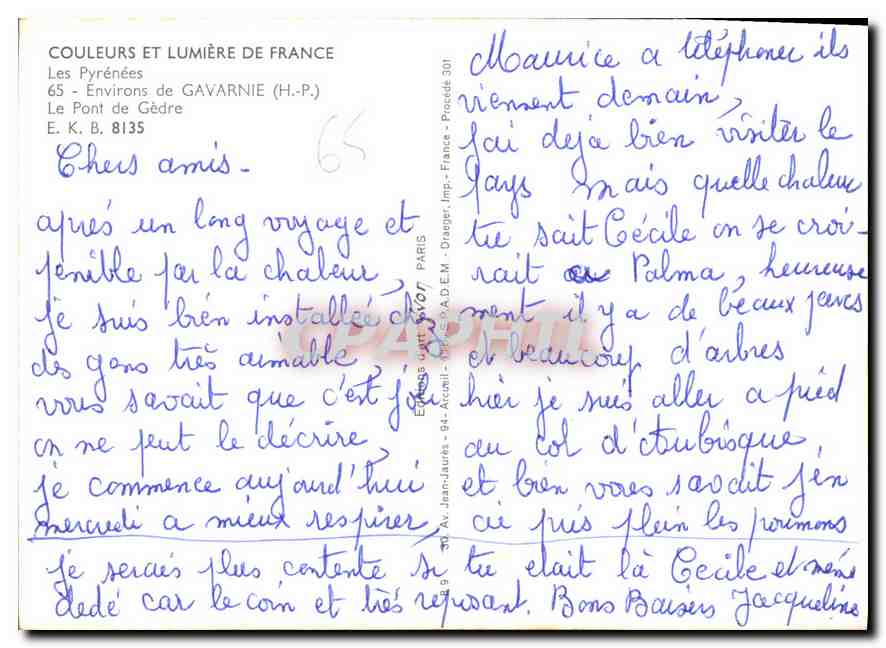 COULEURS ET LUMIÈRE DE FRANCE
Les Pyrénées
65 - Environs de GAVARNIE (H.-P.)
Le Pont de Gèdre
E. K. B. 8135
65
Chers amis -
aprés un long voyage et
pénible par la chaleur,
je suis bien installeé chez
des gens très aimable,
vous savait que c'est joli
on ne peut le décrire,
je commence aujourd'hui
mercredi a mieux respirer,
Maurice a téléphoner ils
viennent demain,
j'ai deja bien visiter le
pays mais quelle chaleur
tu sait Cécile on se croi-
rait a Palma, heureuse
ment il y a de beaux parcs
et beaucoup d'arbres
hier je suis aller a pied
au col d'Aubisque,
et bien vous savait j'en
ai pris plein les poumons
je serais plus contente si tu etait là Cécile et même
dedé car le coin et très reposant. Bons Baisers Jacqueline
Editions d'art Yvon PARIS
30, Av. Jean-Jaurès - 94 - Arcueil - S.P.A.D.E.M. - Draeger, Imp. - France - Procédé 301
CPAPHIL